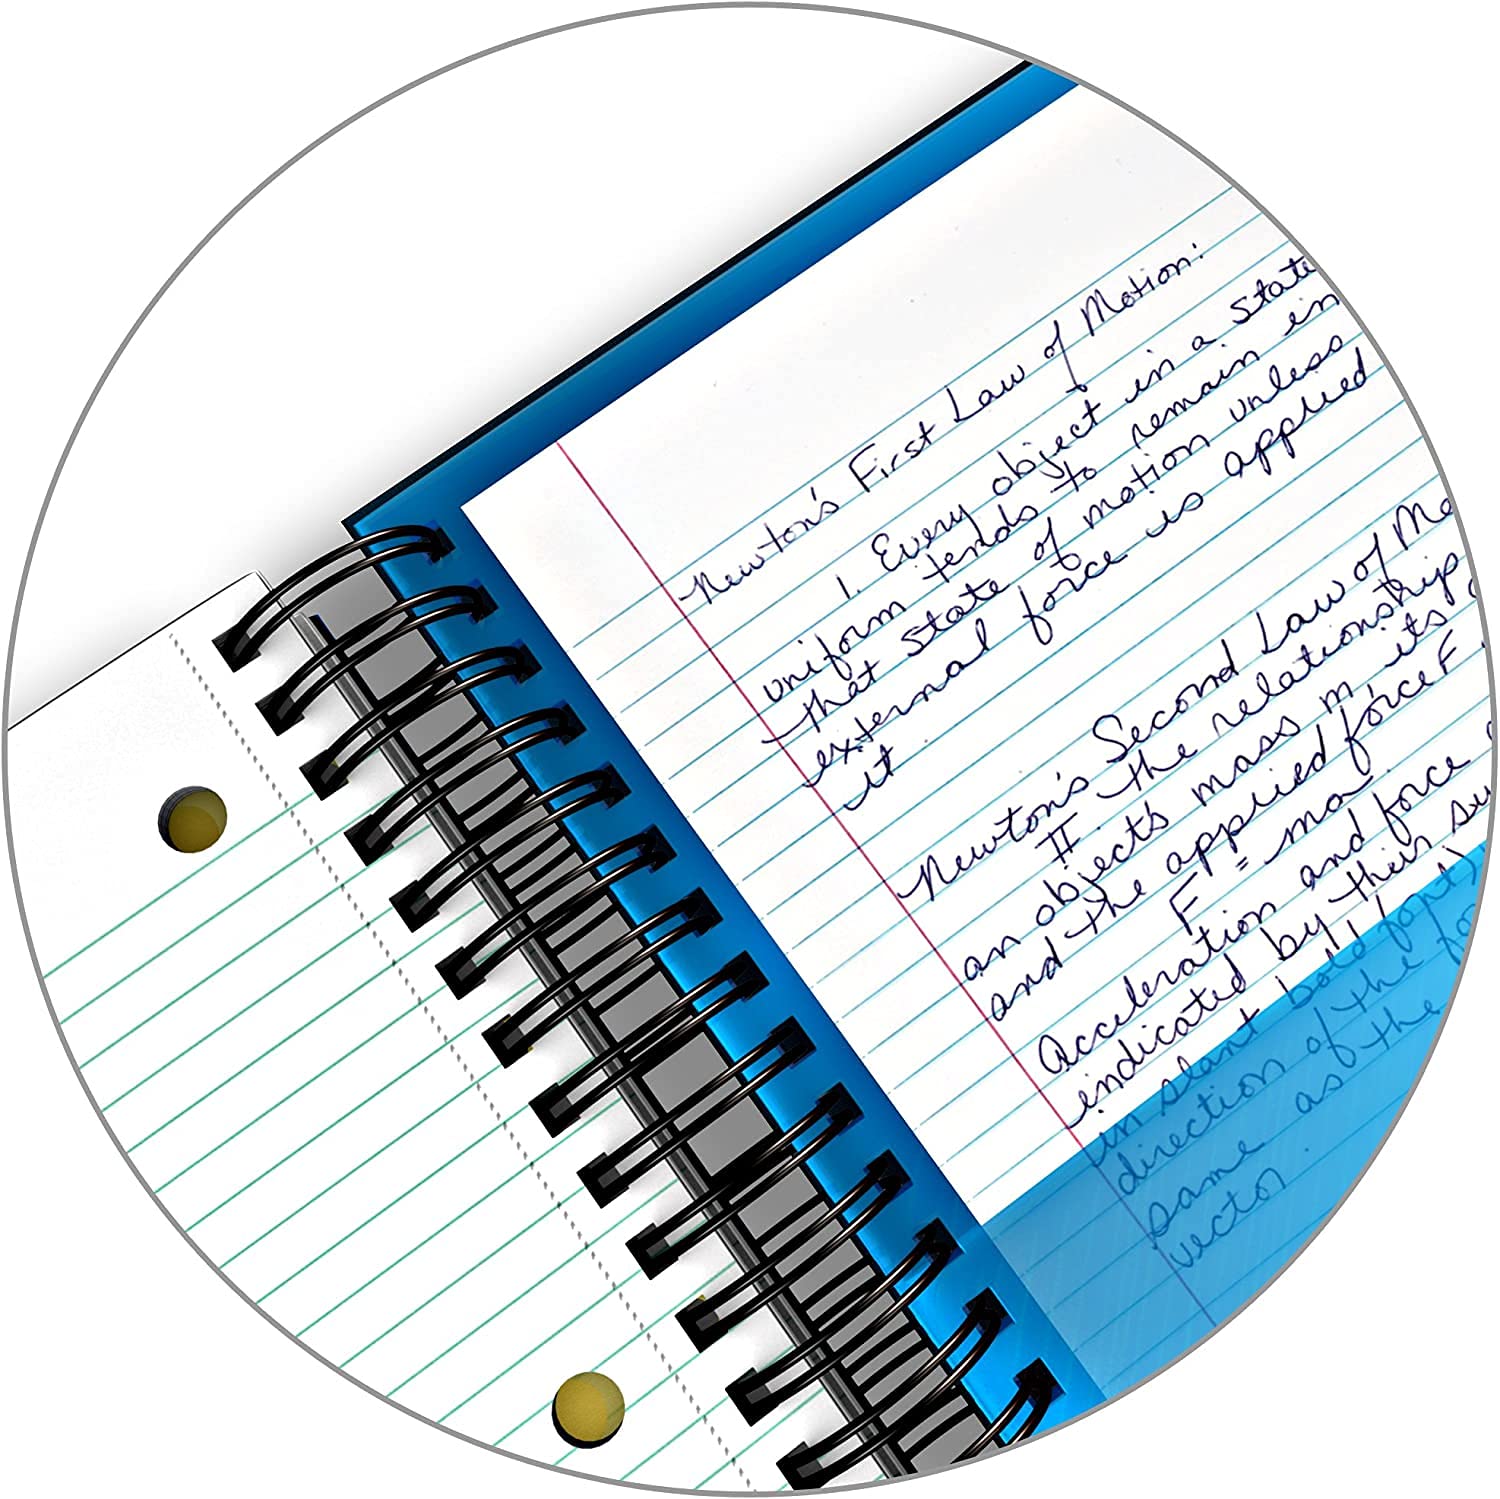 Newton's First Law of Motion:
1. Every object in a state
uniform tends to remain in
that state of motion unless
external force is applied
it
Newton's Second Law of Mo
II the relationship
an objects mass m its
and the applied force F
F = ma
Acceleration and force
indicated by their
in slant bold font)
direction of the fo
same as the
vector.